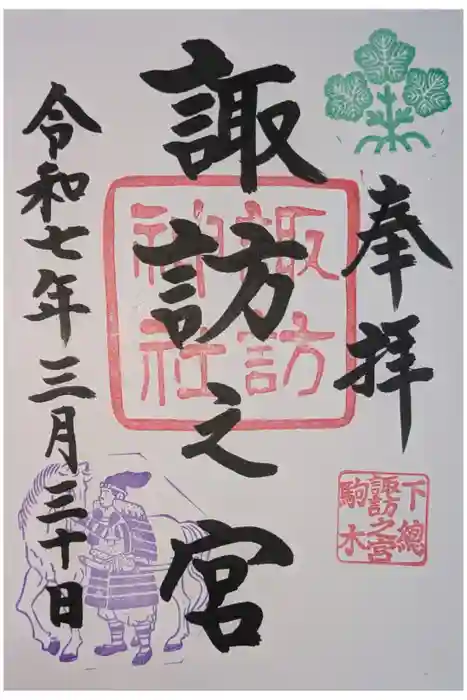 奉拝
下總
諏訪之宮
駒木
諏訪之宮
諏訪
神社
令和七年三月三十日